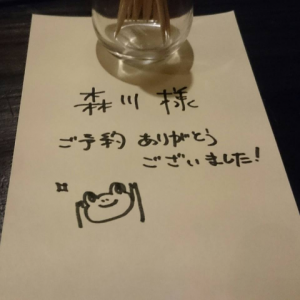 森川 様
ご予約 ありがとう
ございました!